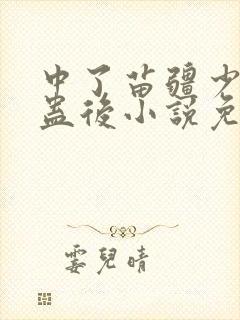 中了苗疆少
蛊後小説免
霎兒晴